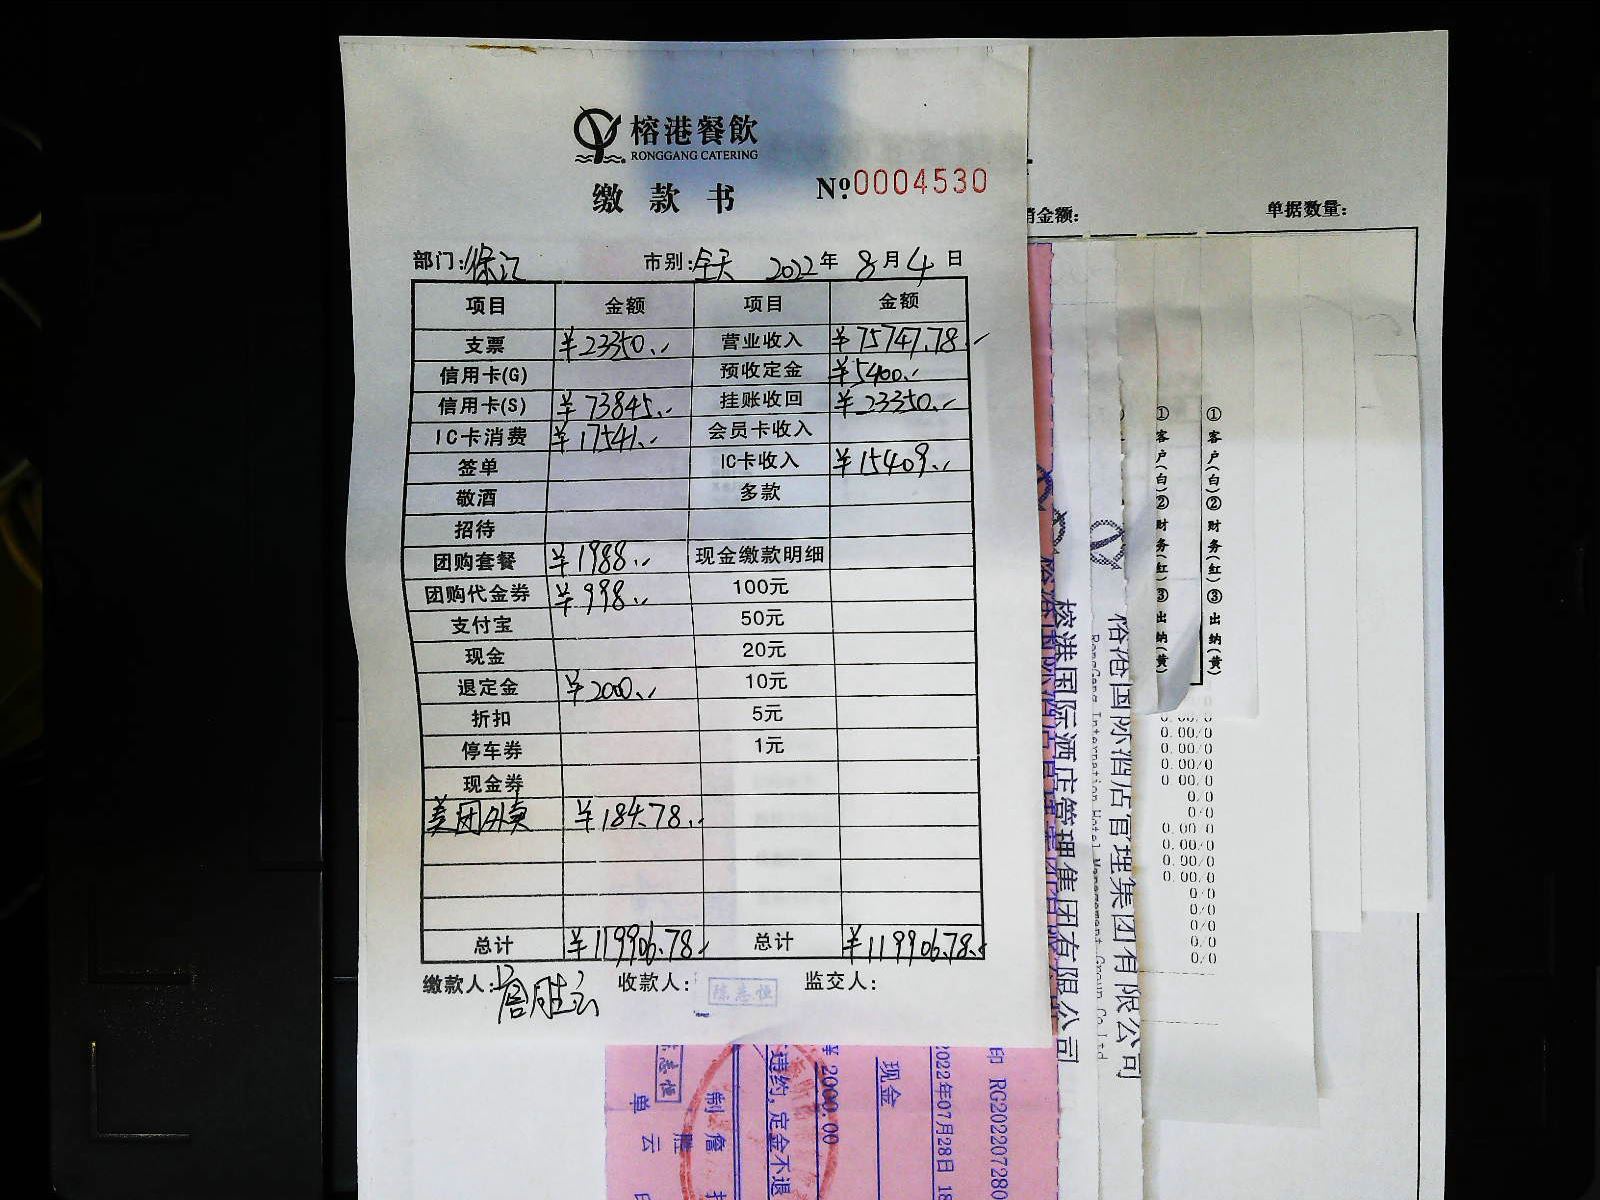 榕港餐飲
RONGGANG CATERING
缴款书 №0004530
部门: 市别:全天 2022年 8月4日
项目 金额 项目 金额
支票 ¥23350.- 营业收入 ¥75747.78.-
信用卡(G) 预收定金 ¥5400.-
信用卡(S) ¥73845.- 挂账收回 ¥23350.-
IC卡消费 ¥17541.- 会员卡收入
签单 IC卡收入 ¥15409.-
敬酒 多款
招待
团购套餐 ¥1988.- 现金缴款明细
团购代金券 ¥998.- 100元
支付宝 50元
现金 20元
退定金 ¥2000.- 10元
折扣 5元
停车券 1元
现金券
美团外卖 ¥184.78.-
总计 ¥119906.78.- 总计 ¥119906.78.-
缴款人:詹胜云 收款人: 陈志恒 监交人:
销金额: 单据数量:
①客户(白)②财务(红)③出纳(黄)
①客户(白)②财务(红)③出纳(黄)
榕港国际酒店管理集团有限公司
榕港国际酒店管理集团有限公司
RongGang Internation Hotel Management Group Co Ltd
榕港国际酒店管理集团有限公司
0.00/0
0.00/0
0.00/0
0.00/0
0.00/0
0/0
0/0
0.00/0
0.00/0
0.00/0
0.00/0
0/0
0/0
0/0
0/0
0/0
印 RG202207280
2022年07月28日 18
现金
¥ 2000.00
违约,定金不退
制 詹胜云
单
志恒